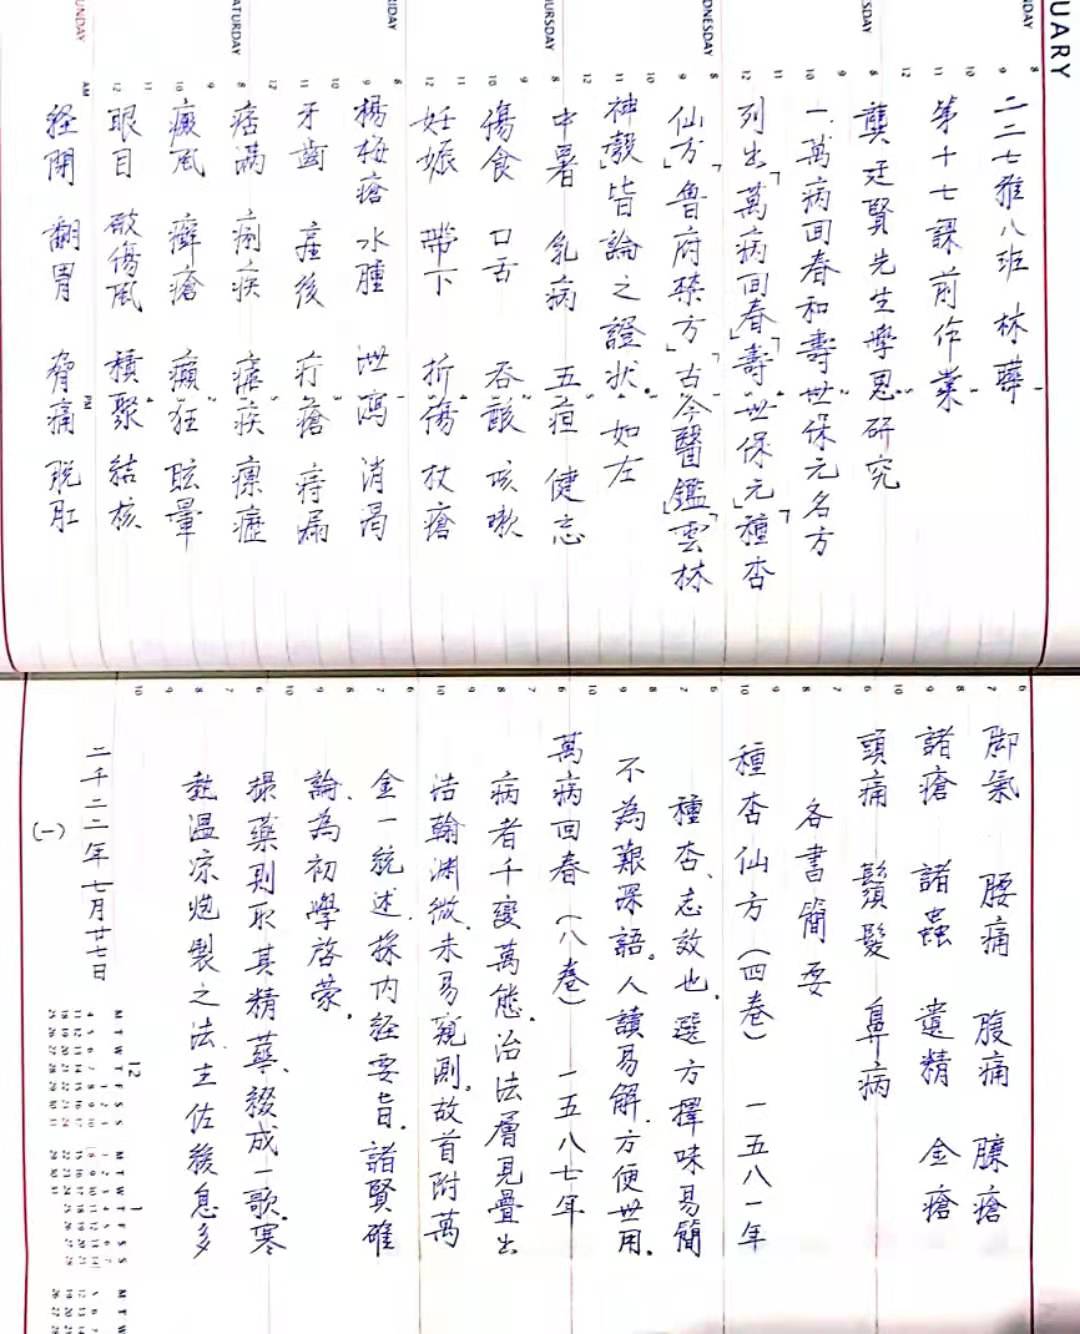 二二七雅八班 林曄
第十七課前作業
龔廷賢先生學思研究
一.萬病回春和壽世保元名方
列出「萬病回春」「壽世保元」「種杏
仙方」「魯府禁方」「古今醫鑑」「雲林
神彀」皆論之證狀.如左
中暑 乳病 五疸 健忘
傷食 口舌 吞酸 咳嗽
妊娠 帶下 折傷 杖瘡
楊梅瘡 水腫 泄瀉 消渴
牙齒 產後 疔瘡 痔漏
痞滿 痢疾 瘧疾 瘰癧
癜風 癬瘡 癲狂 眩暈
眼目 破傷風 積聚 結核
経閉 翻胃 脅痛 脫肛
脚氣 腰痛 腹痛 臁瘡
諸瘡 諸蟲 遺精 金瘡
頭痛 鬚髮 鼻病
各書簡要
種杏仙方(四卷) 一五八一年
種杏、志效也.選方擇味易簡
不為艱深語.人讀易解.方便世用.
萬病回春(八卷) 一五八七年
病者千變萬態.治法層見疊出
浩翰渊微.未易窺測.故首附萬
金一統述.採內経要旨.諸賢確
論.為初學啓蒙.
撮藥則取其精華、綴成一歌.寒
熱溫凉炮製之法.主佐後息多
二千二二年七月廿七日
(一)
UARY
NDAY
SDAY
DNESDAY
URSDAY
RIDAY
ATURDAY
UNDAY
AM
PM
12
1
M T W T F S S
M T W T F S S
M T W